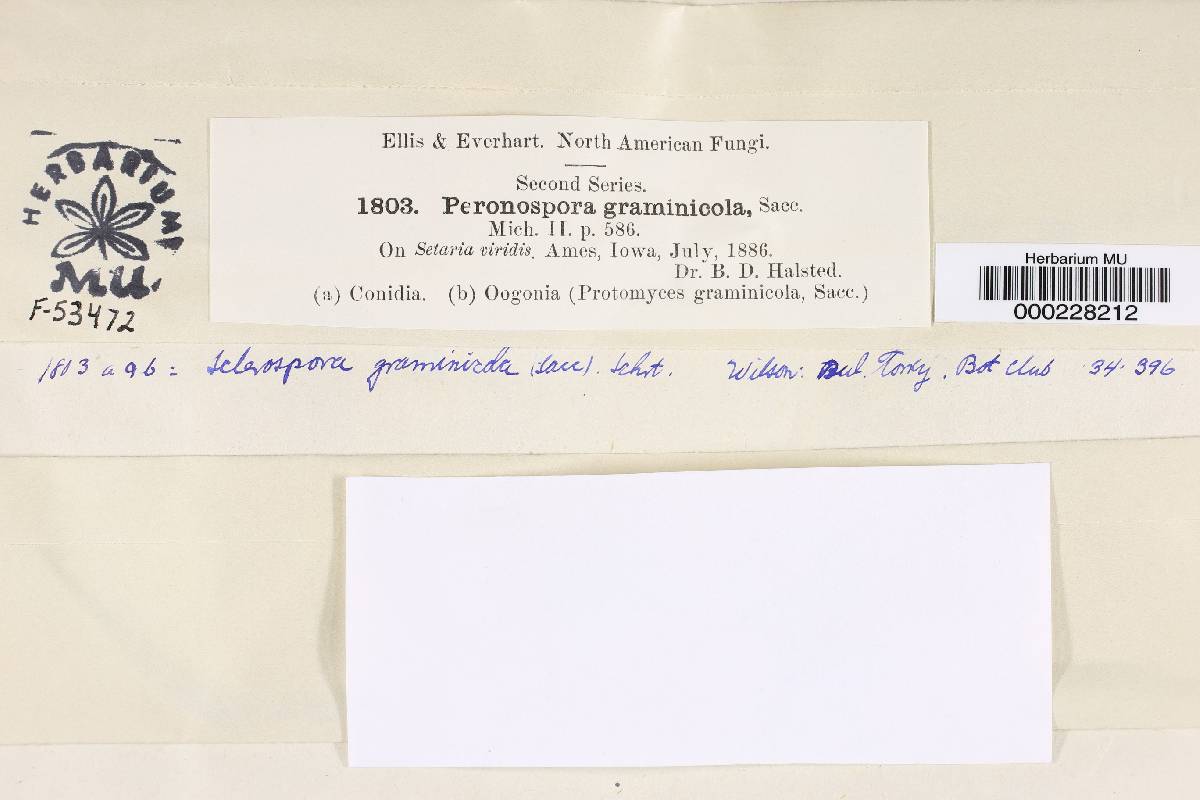 HERBARIUM
MU.
F-53472
Ellis & Everhart. North American Fungi.
Second Series.
1803. Peronospora graminicola, Sacc.
Mich. II. p. 586.
On Setaria viridis, Ames, Iowa, July, 1886.
Dr. B. D. Halsted.
(a) Conidia. (b) Oogonia (Protomyces graminicola, Sacc.)
Herbarium MU
000228212
1803 a = Sclerospora graminicola (Sacc). Schrt. Wilson: Bul. Torry. Bot Club 34. 396